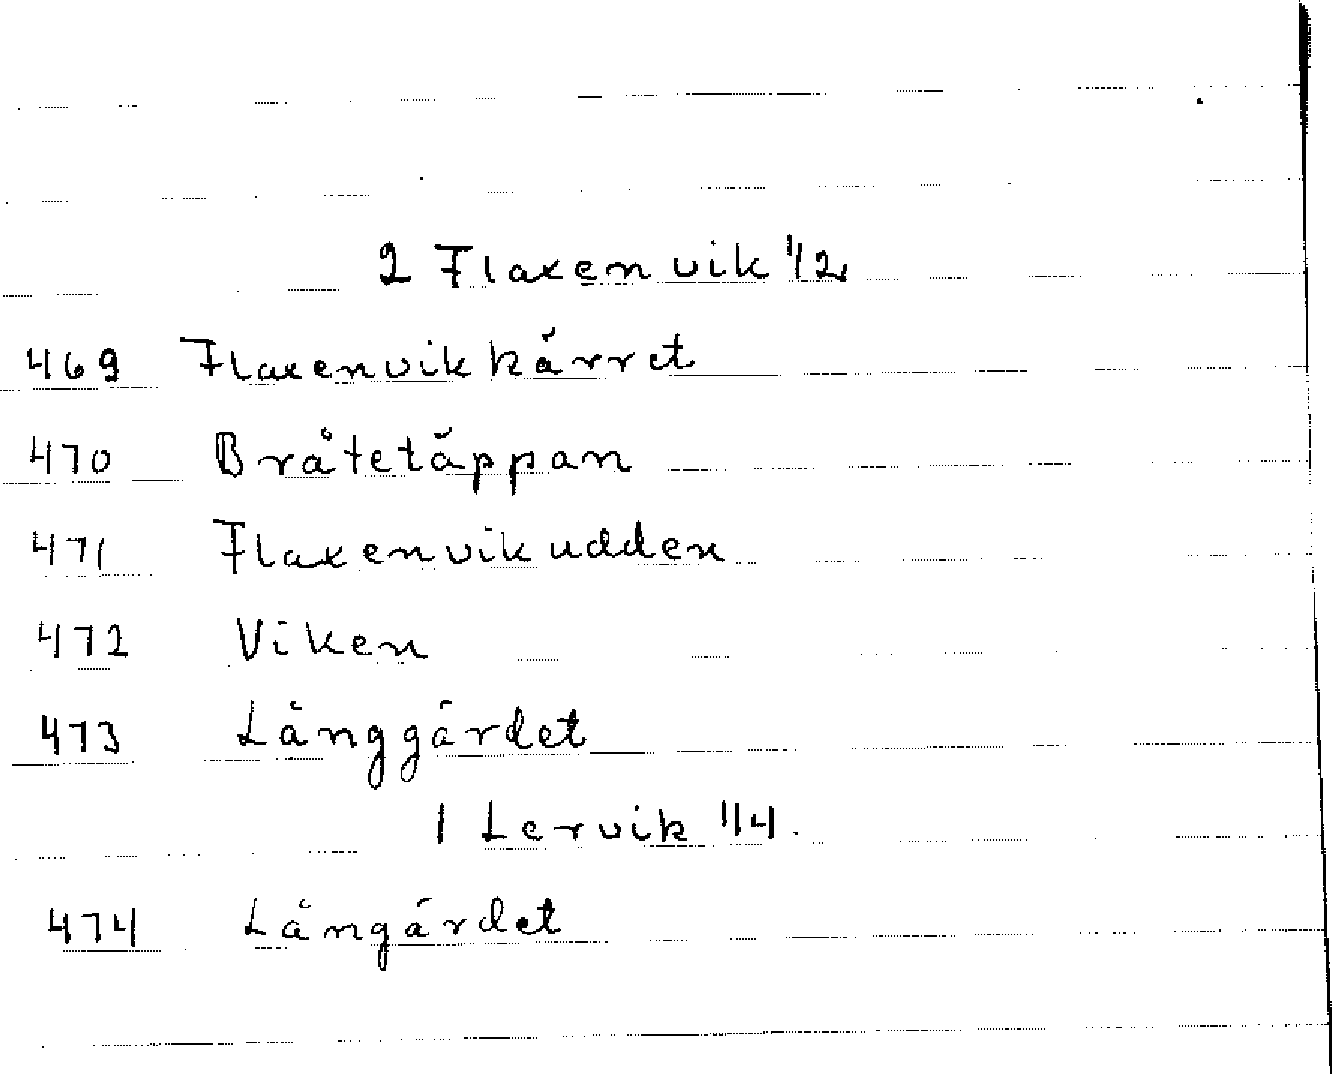 2 Flaxenvik 1/2
469 Flaxenvikkärret
470 Bråtetäppan
471 Flaxenvikudden
472 Viken
473 Långgärdet
1 Lervik 1/4.
474 Långärdet